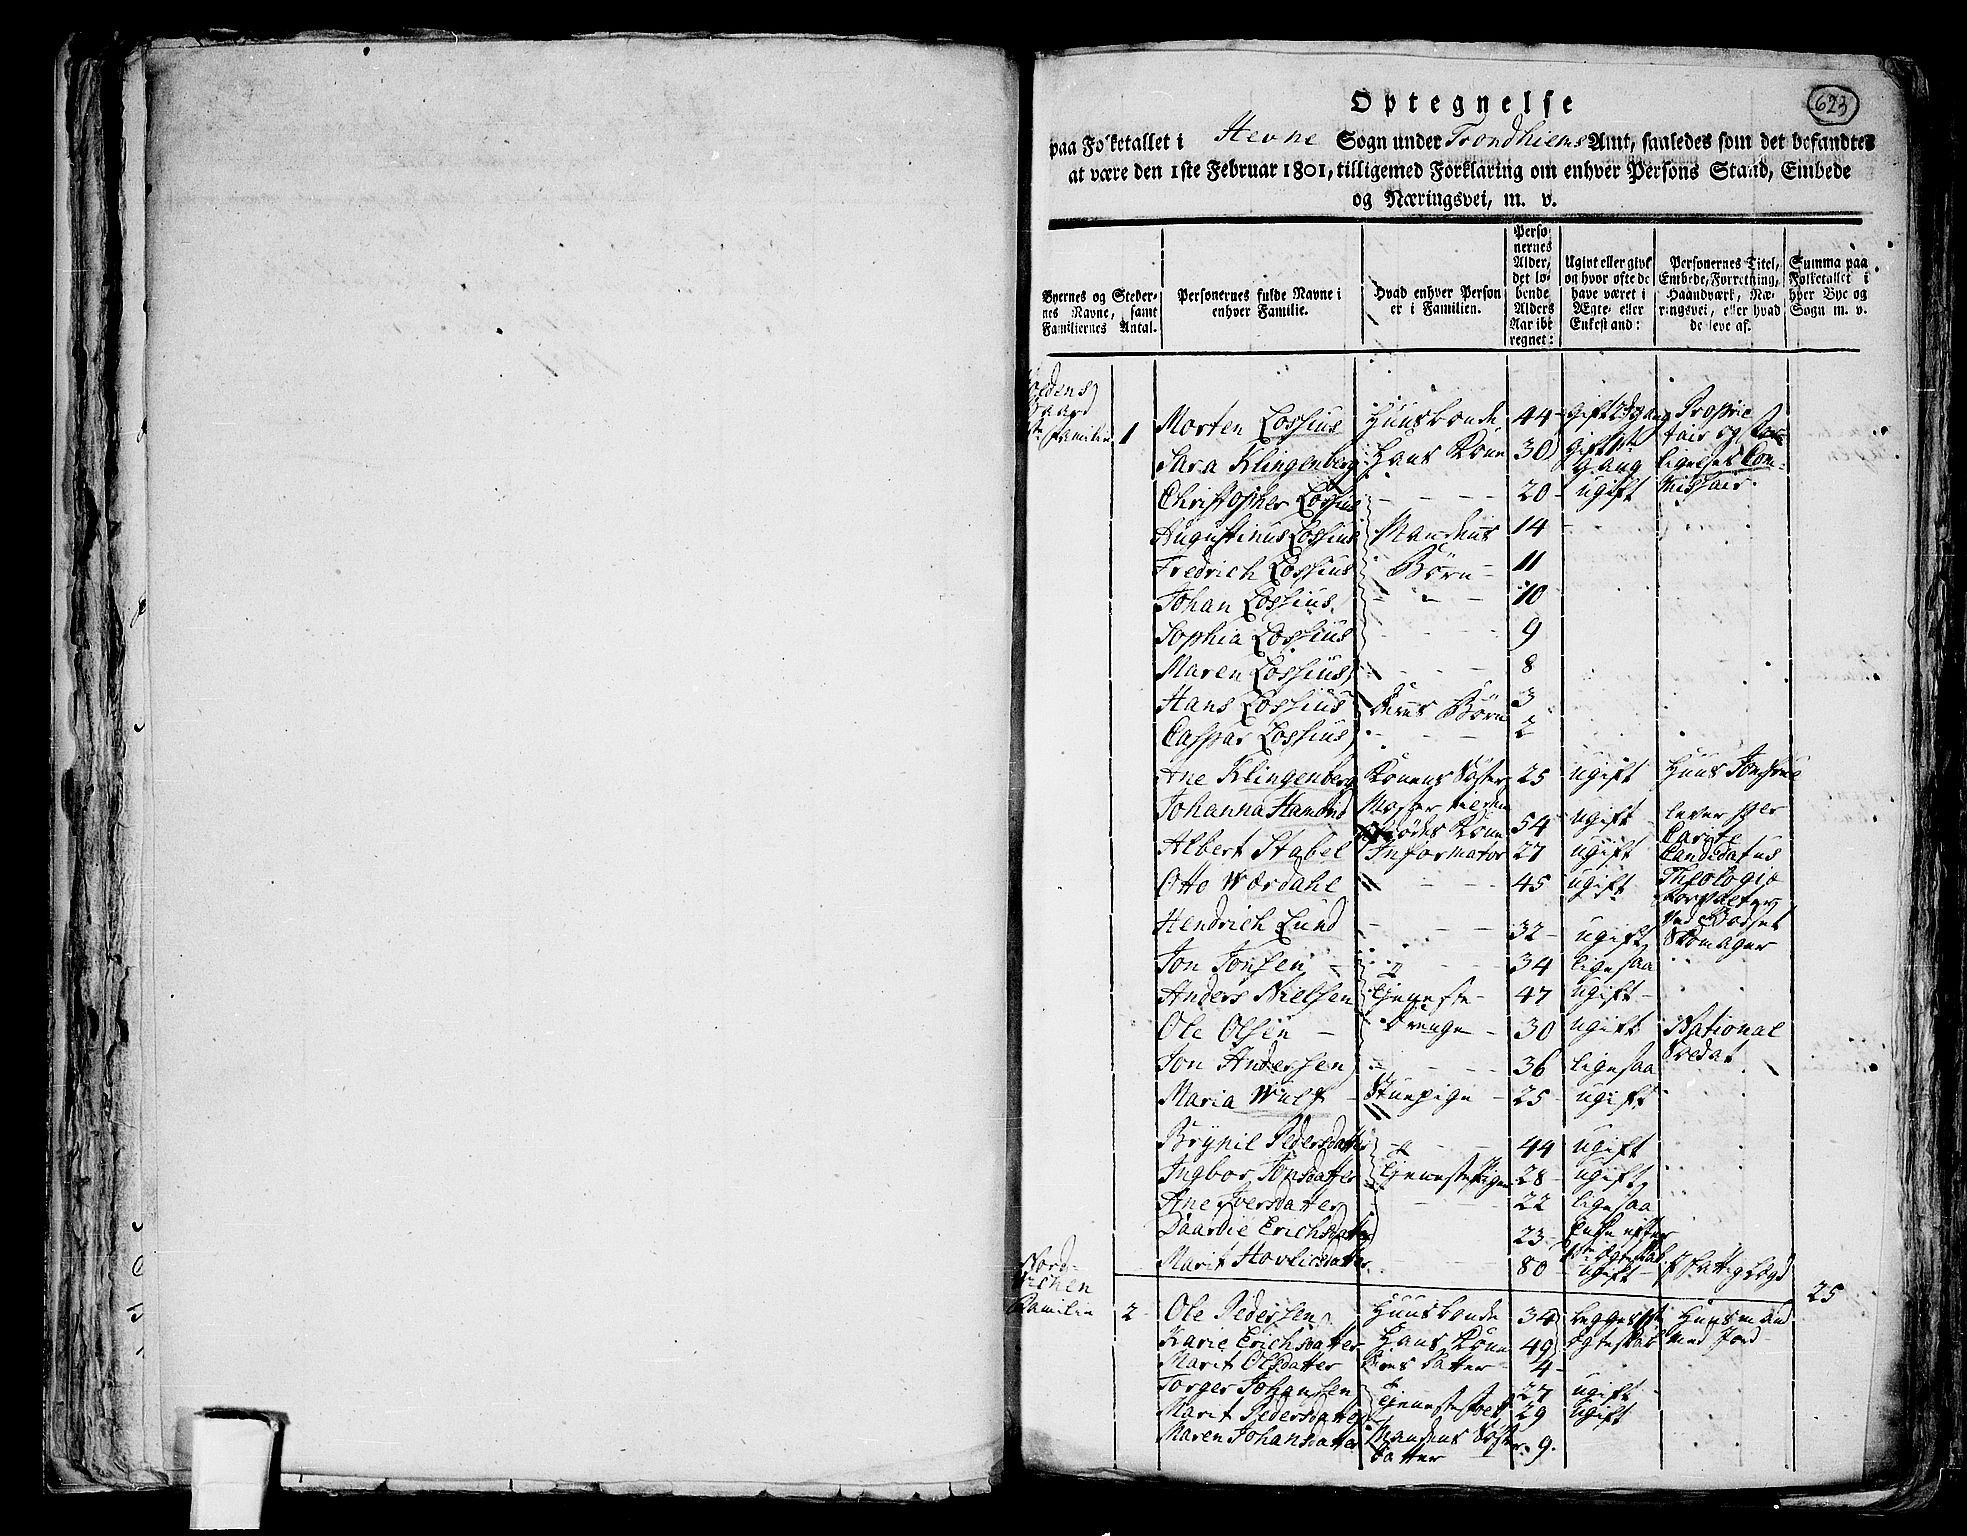 623
Optegnelse
paa Folketallet i Hevne Sogn under Trondhiems Amt, saaledes som det befandtes
at være den 1ste Februar 1801, tilligemed Forklaring om enhver Persons Stand, Embede
og Næringsvei, m. v.
Byernes og Steder-
nes Navne, samt
Familiernes Antal.
Personernes fulde Navne i
enhver Familie.
Hvad enhver Person
er i Familien.
Perso-
nernes
Alder,
det lø-
bende
Alders
Aar ibe-
regnet:
Ugivt eller givt
og hvor ofte de
have været i
Ægte- eller
Enkestand:
Personernes Titel,
Embede, Forretning,
Haandværk, Næ-
ringsvei, eller hvad
de leve af.
Summa paa
Folketallet i
hver Bye og
Sogn m. v.
Gaard
Familie 1 Morten Lossius Huusbonde 44 Gift 2d gang Proprie
Sara Klingenberg Hans Kone 30 Gift 1ste gang tair og For
ligelses Com-
Christopher Lossius 20 ugift missair
Augustinus Lossius Mandens 14
Fredrich Lossius Börn 11
Johan Lossius 10
Sophia Lossius 9
Maren Lossius 8
Hans Lossius Deres Börn 3
Caspar Lossius 2
Ane Klingenberg Konens Söster 25 ugift Huus Jomfrue
Johanna Hamond Moster til 54 ugift lever af
Kone
Albert Stabel Informator 27 ugift Candidatus
Otto Wærdahl 45 ugift Theologiæ
Hendrich Lund 32 ugift ved Godset
Skomager
Jon Jonsen 34 ligesaa
Anders Nielsen tjeneste 47 ugift
Ole Olsen Drenge 30 ugift National
Jon Andersen 36 ligesaa Soldat
Maria Wulf Stuepige 25 ugift
Brynil Pedersdatter 44 ugift
Ingbor Jonsdatter tjenestepiger 28 ugift
Ane Iversdatter 22 ligesaa
Erichsdatter 23 Enke efter
1ste Ægteskab
Marit 80 ugift
25
Nord-
Familie 2 Ole Pedersen Huusbonde 34 begge 1ste Huusmand
Marie Erichsdatter Hans Kone 49 Ægteskab med Jord
Marit Olsdatter Deres Datter 4
Torger Johansen tjenestefolk 27 ugift
Marit Pedersdatter 29 ugift
Maren Johansdatter Mandens Söster 9
Datter